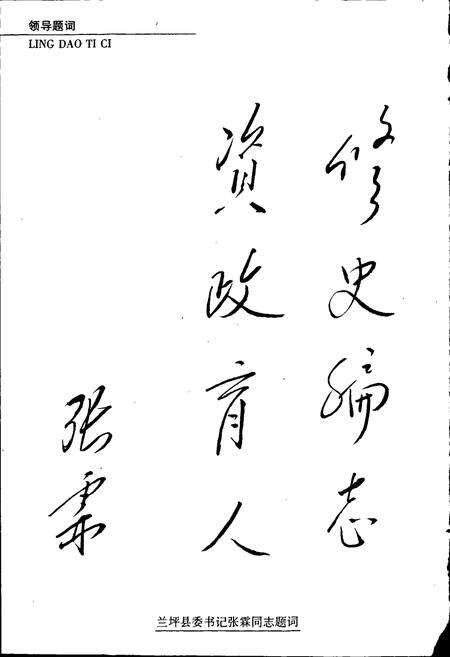 领导题词
LING DAO TI CI
修史编志
资政育人
张霖
兰坪县委书记张霖同志题词